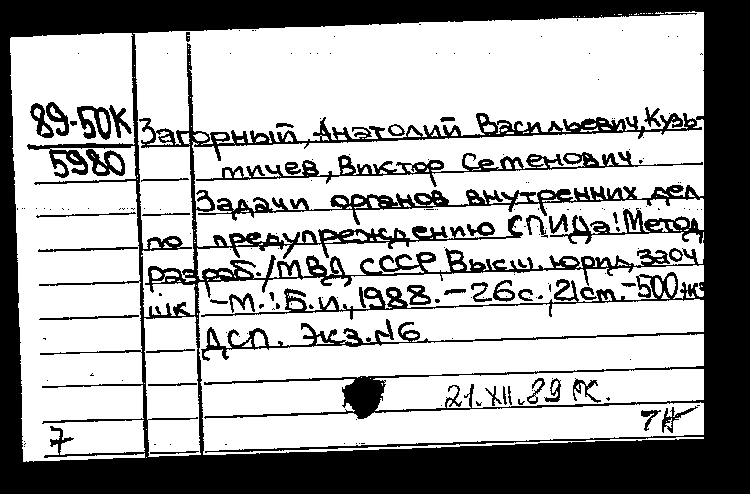 89-50К
5980
Загорный, Анатолий Васильевич, Кузь-
мичев, Виктор Семенович.
Задачи органов внутренних дел
по предупреждению СПИДа: Метод.
разраб. / МВД СССР, Высш. юрид. заоч.
шк. - М.: Б. и., 1988. - 26 с.; 21 см. - 500 экз
ДСП. Экз. N6.
21.XII.89
7
7Н